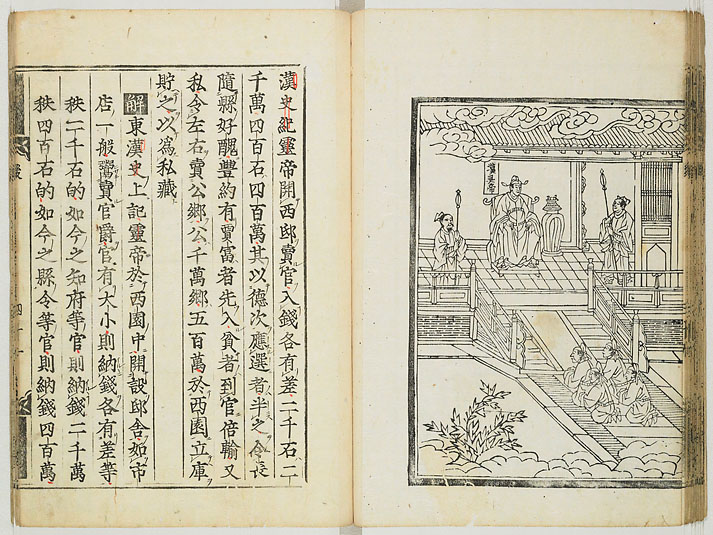 漢靈帝
漢史紀靈帝開西邸賣官入錢各有差二千石二
千萬四百石四百萬其以德次應選者半之令長
隨縣好醜豐約有賈富者先入貧者到官倍輸又
私令左右賣公卿公千萬卿五百萬於西園立庫
貯之以為私藏
解東漢史上記靈帝於西園中開設邸舍如市
店一般鬻賣官爵官有大小則納錢各有差等
秩二千石的如今之知府等官則納錢二千萬
秩四百石的如今之縣令等官則納錢四百萬